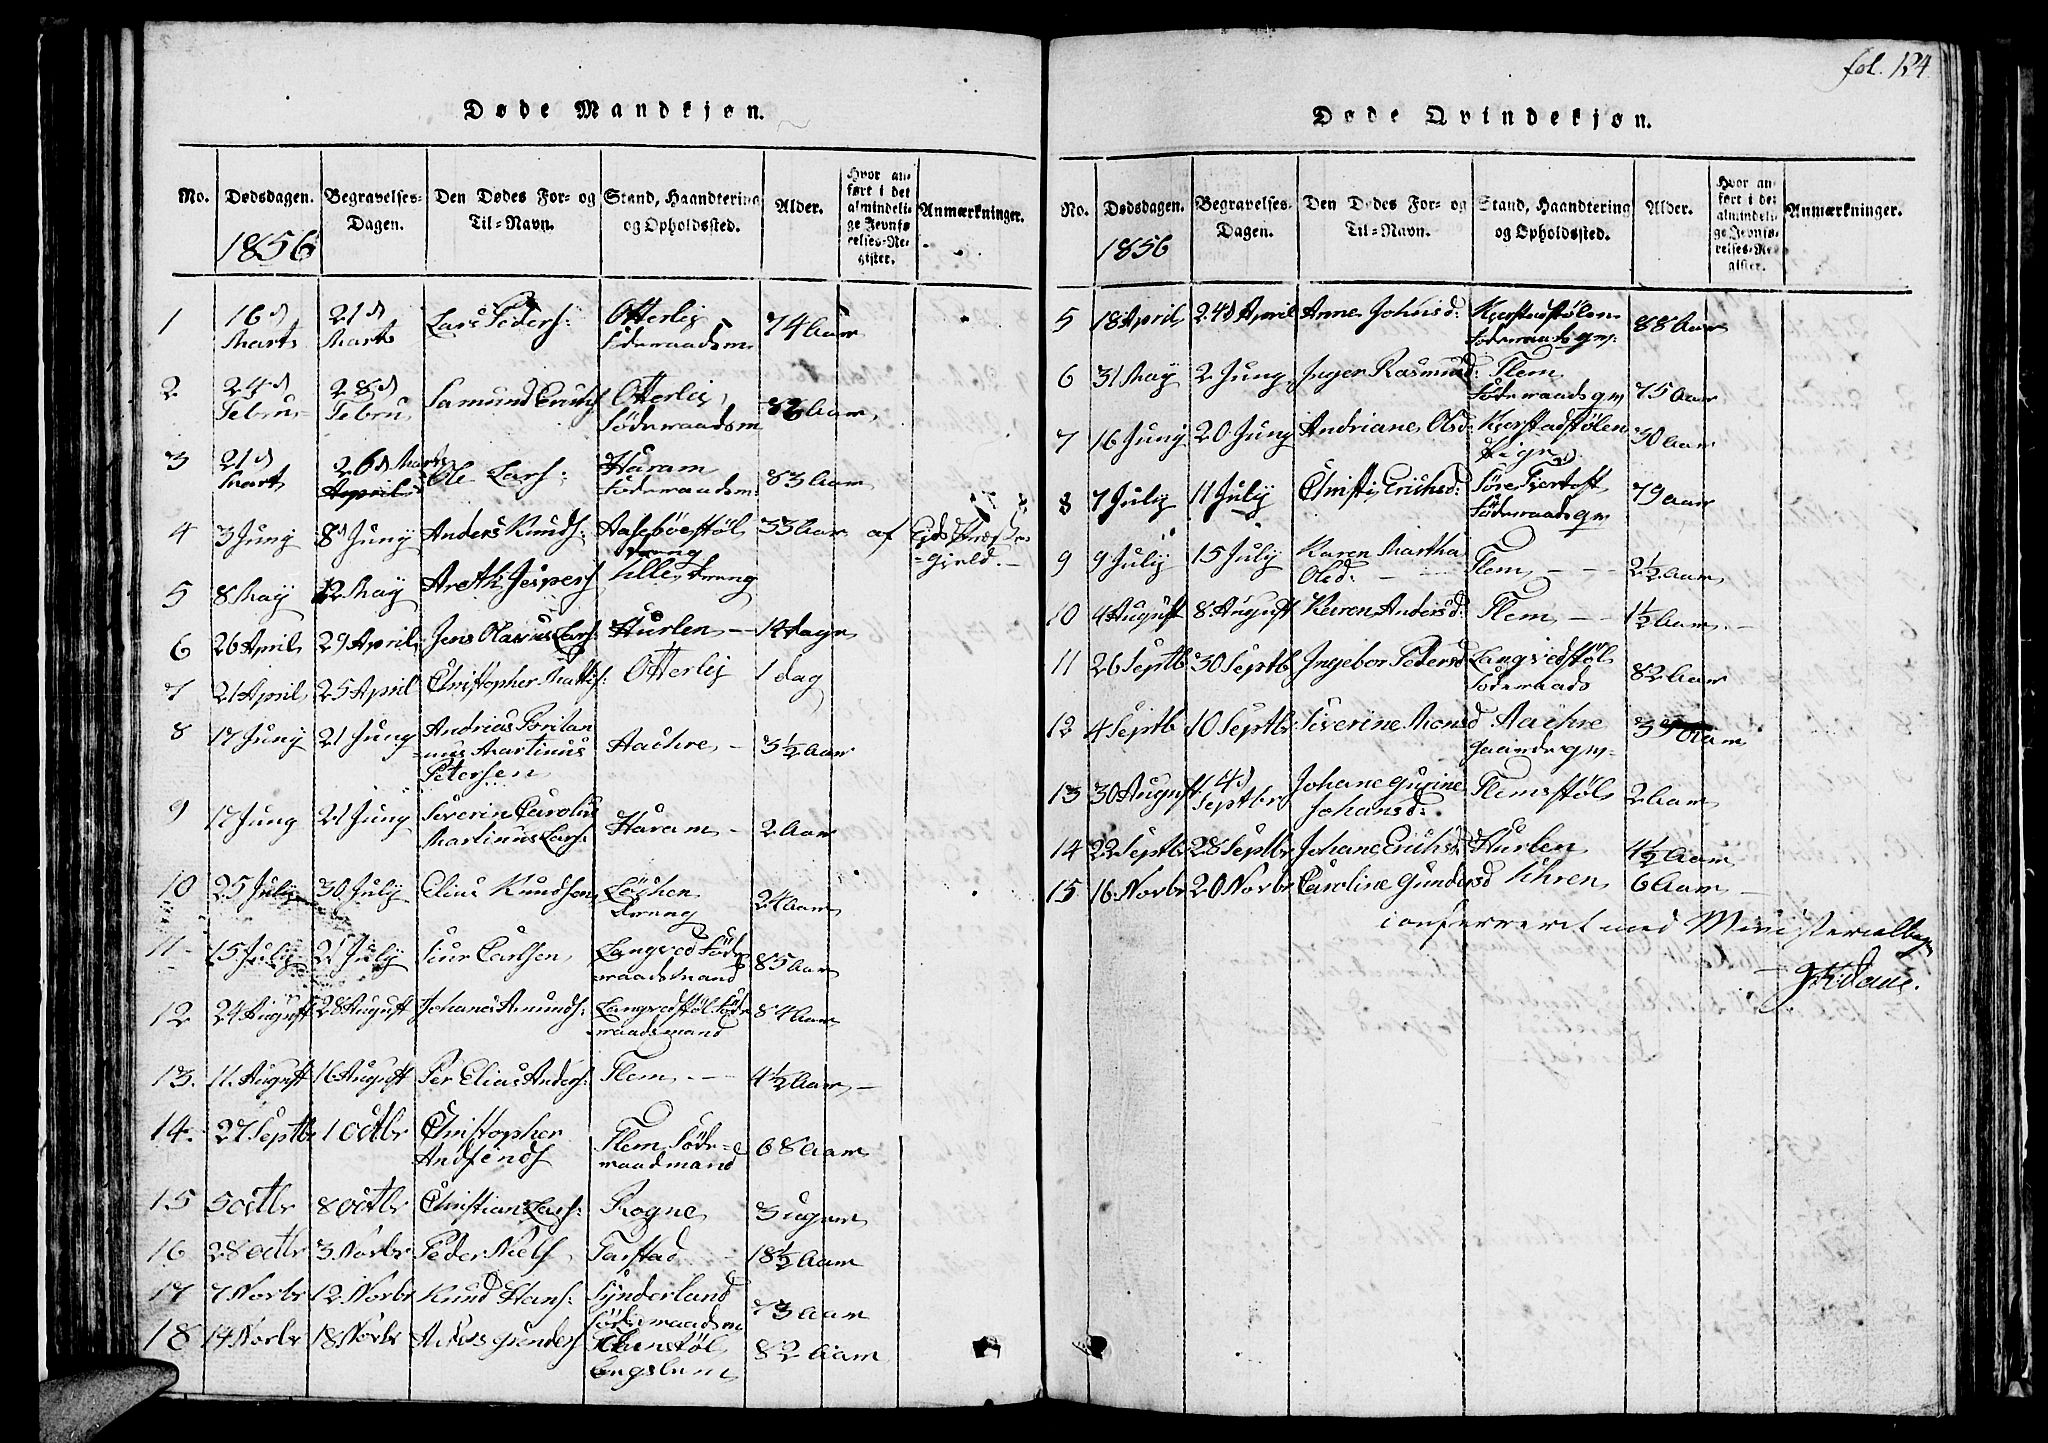 fol. 124
Døde Mandkjøn.
No. Dødsdagen. Begravelses-Dagen. Den Dødes For- og Til-Navn. Stand, Haandtering og Opholdssted. Alder. Hvor anført i det almindelige Jevnførelses-Register. Anmærkninger.
1856
1 16d Marts 21d Marts Lars Peders: Otterlej Föderaadsm. 74 Aar
2 24d Febru 28d Febru Samund Erichs Otterlej, Föderaadsm 86 Aar,
3 21d Marts 26d Marts April Ole Lars: Haram Föderaadsm. 83 Aar
4 3 Juny 8d Juny Anders Knuds: Aasebøestøl dreng 33 Aar af Eids Præste=gjeld.
5 8 May 12 May Areth Jespers lille dreng
6 26 April 29 April Jens Olavius Lars: Hurlen 14 dage
7 21 April 25 April Christopher Matis: Otterlej 1 dag
8 17 Juny 21 Juny Andrias Martinus Petersen Aachre 3½ Aar
9 17 Juny 21 Juny Severin Carolus Martinus Lars: Haram 2 Aar
10 25 July 30 July Elius Knudsen Løchen dreng 24 Aar
11 15 July 21 July Siur Carlsen Langved Föderaadsmand 85 Aar
12 24 August 28 August Johanes Amunds: Langvedstøl Föderaadsmand 84 Aar
13. 11. August 16 August Per Elias Anders: Flem 4½ Aar
14. 27 Septbr 1 Octbr Christopher Andfends Flem Föderaadmand 68 Aar
15 5 Octbr 8 Octbr Christian Lars: Rogne 3 uger
16 28 Octbr 3 Norbr Peder Niels Farstad 18½ Aar
17 7 Norbr 12 Norbr Knud Hans: Synderland Föderaadsm 73 Aar
18 14 Norbr 18 Norbr Gunders 82 Aar
Døde Qvindekjøn.
No. Dødsdagen. Begravelses-Dagen. Den Dødes For- og Til-Navn. Stand, Haandtering og Opholdssted. Alder. Hvor anført i det almindelige Jevnførelses-Register. Anmærkninger.
1856
5 18 April 24d April Anne Johnsd: Kjerstadstølen Föderaadsgm: 88 Aar
6 31 May 2 Juny Inger Rasmusd: Flem Föderaadsgm 75 Aar
7 16 Juny 20 Juny Andriane Olsd Kjerstadstølen Pige 30 Aar
8 7 July 11 July Christj Erichsd: Søre Fjertoft Föderaadsgm 79 Aar
9 9 July 15 July Karen Martha Olsd: Flem 2½ Aar
10 4 August 8 August Karen Andersd: Flem 1½ Aar
11 26 Septb 30 Septb Ingebor Pedersd Langvedstøl Föderaads 82 Aar
12 4 Septb 10 Septbr Siverine Monsd Aachre Gaardegm 39 Aar
13 30 August 4d Septbr Johane Gurine Johansd: Flemsstøl 2 Aar
14 22 Septbr 28 Septbr Johane Erichsd: Hurlen 4½ Aar
15 16 Norbr 20 Norbr Caroline Gundersd Uhren 6 Aar
conferreret med Ministerialbogen